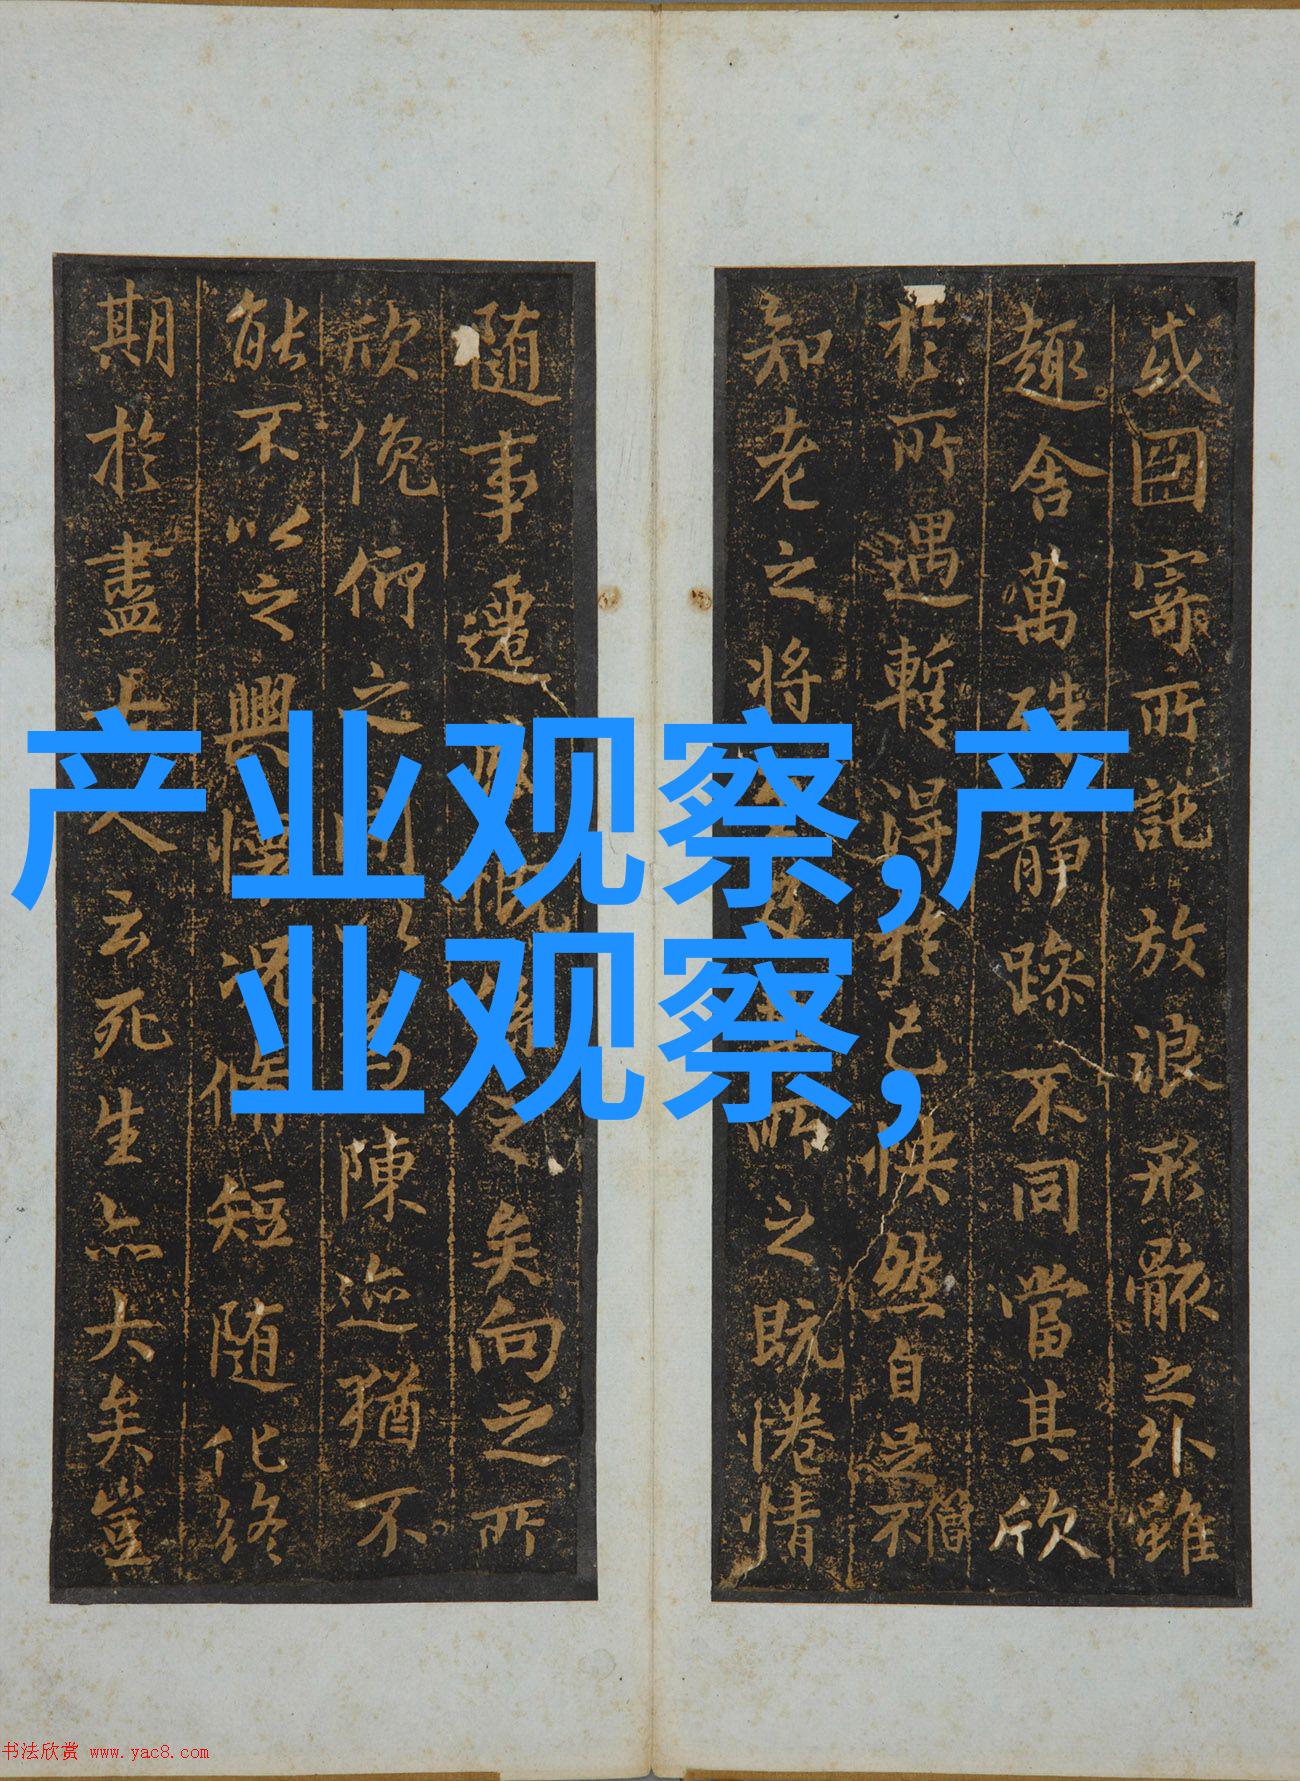 产业观察,产
业观察,
或因寄所託放浪形骸之外雖
趣舍萬殊静躁不同當其欣
於所遇暫得於己快然自足不
僧
知老之将所之既惓情
隨事遷慨係之矣向之所
欣俛仰之間以為陳迹猶不
能不以之興懷况脩短随化終
期於盡古人云死生亦大矣豈
书法欣赏 www.yac8.com